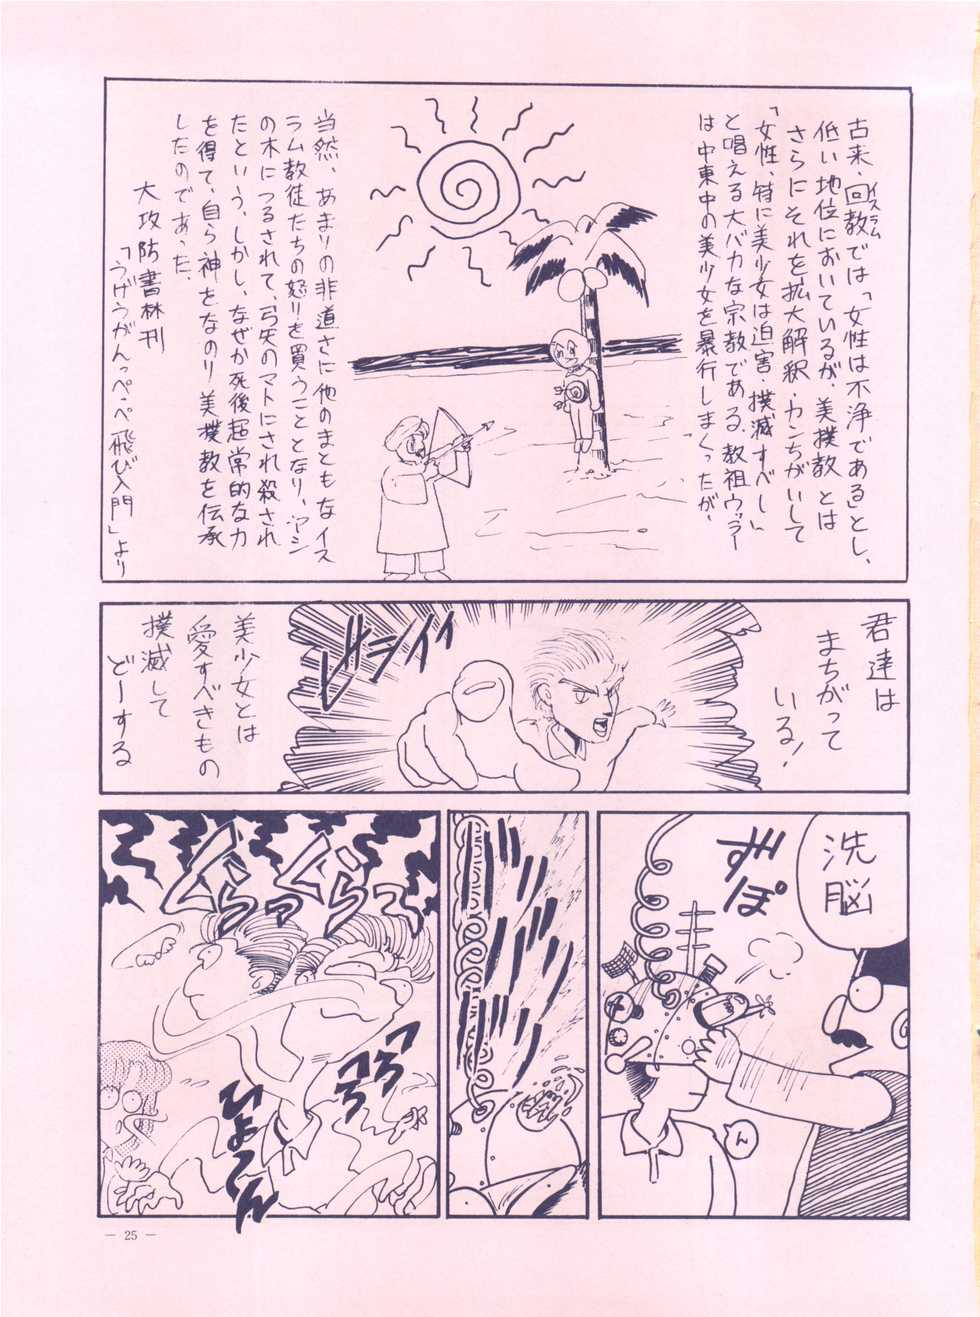 古来、回教では「女性は不浄である」とし、
イスラム
低い地位においているが、美撲教とは
さらにそれを拡大解釈・カンちがいして
「女性、特に美少女は迫害・撲滅すべし」
と唱える大バカな宗教である。教祖ウッラー
は中東中の美少女を暴行しまくったが、
当然、あまりの非道さに他のまともなイス
ラム教徒たちの怒りを買うこととなり、ヤシ
の木につるされて、弓矢のマトにされ殺され
たという。しかし、なぜか死後超常的な力
を得て、自ら神をなのり美撲教を伝承
したのであった。
大攻防書林刊
「うげうがんっぺぺ飛び入門」より
君達は
まちがって
いる!
ビシライイィ
美少女とは
愛すべきもの
撲滅して
どーする
洗脳
ずぽ
ん
ぐらァぐらァ
ひょてん
― 25 ―